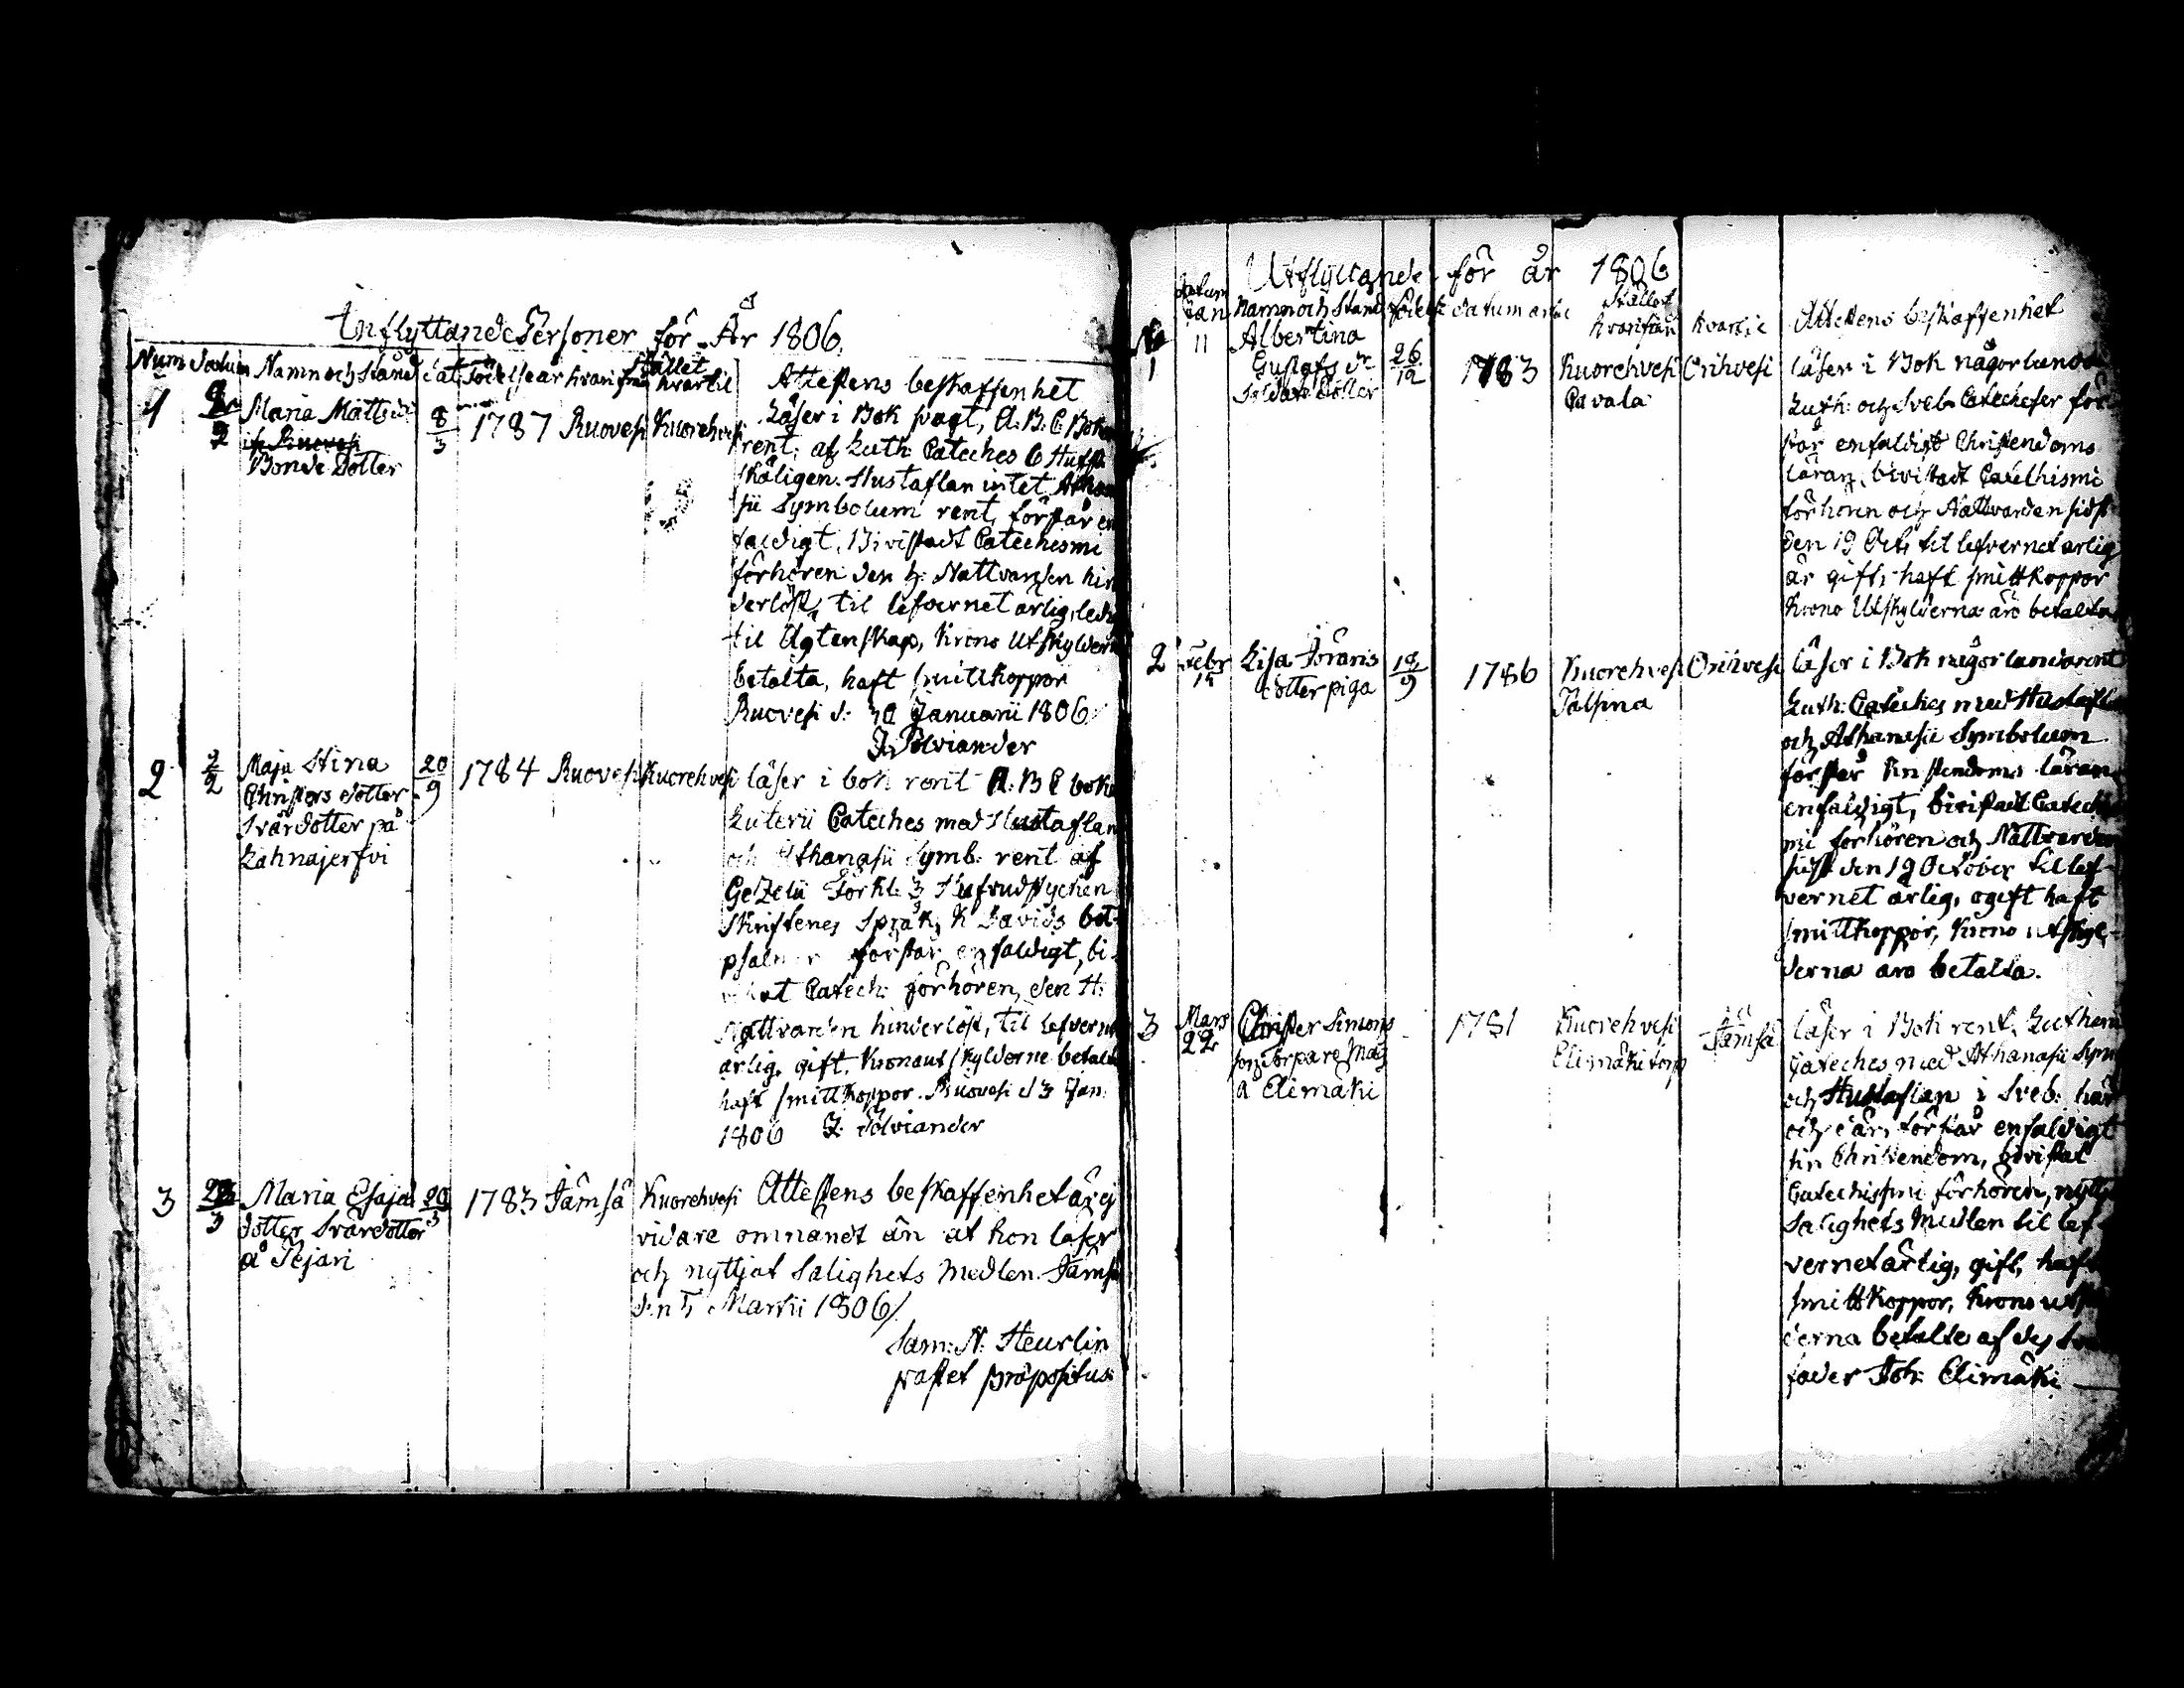 Inflyttande Personer för År 1806
Num Datum Namn och Stånd dat Födelse år hvarifrån Stället hvartil Attestens beskaffenhet
1 2/2 Maria Matts dr 8/3 1787 Ruovesi Kuorehvesi
Bonde dotter
Läser i Bok svagt, A.B.C. Boken
rent, af Luth: Cateches 6 Hufst:
skäligen. Hustaflan intet Athana
sii Symbolum rent, förstår en
faldigt, Bivistadt Catechesmi
förhören den h: Nattvarden hin
derlöst, til lefvernet ärlig, ledig
til Ägtenskap, Krono Utskylderne
betalta, haft smittkoppor
Ruovesi d: Januarii 1806
J. Polviander
2 2/2 Maja Stina 20/9 1784 Ruovesi Kuorehvesi
Christers dotter
Svärdotter på
Lahnajerfvi
läser i bok rent A.B.C boken
Luterii Cateches med Hustaflan
och Athanasii Symb: rent af
Gezelii Förkl: 3 Hufvudstycken
Skriftenes Språk, K Davids bot
psalmer förstår enfaldigt, bi
Catech: förhören, den H:
Nattvarden hinderlöst, til lefvernet
ärlig, gift, Kronautskylderne betalta
haft smittkoppor. Ruovesi d 3 Jan:
1806 J. Polviander
3 3 Maria Esajæ 20/3 1783 Jämsä Kuorehvesi
dotter Svärdotter
å Pejari
Attestens beskaffenhet är ej
vidare omnämdt än at hon läser
och nyttjat Salighets Medlen. Jämsä
den 5 Martii 1806/
Sam: N: Heurlin
præpositus
Utflyttande för år 1806
No Datum Namn och Stånd Födelse datum Stället hvarifrån hvartil Attestens beskaffenhet
1 Jan 11 Albertina
Gustafs dr 26/12 1783 Kuorehvesi Orihvesi
Soldate dotter Pavala
läser i Bok någorlunda
Luth: och Sveb: Catecheser för
står enfaldigt Christendoms
läran, bivistadt Catechismi
förhören och Nattvarden sidst
den 19 Oct, til lefvernet ärlig
är gift, haft smittkoppor
Krono Utskylderna äro betalta
2 Febr 15 Lisa Jörans 18/9 1786 Kuorehvesi Orihvesi
dotter piga
läser i Bok någorlunda rent
Luth: Cateches med Hustafla
och Athanasii Symbolum
förstår Kristendoms läran
enfaldigt, bivistadt Catechis
mi förhören och Nattvarden
sidst den 19 October til lef
vernet ärlig, ogift haft
smittkoppor, Krono utskyl
derna äro betalta.
3 Mars 22 Christer Simons 1781 Kuorehvesi Jämsä
son Torpare Måg Elimäki torp
å Elimäki
läser i Bok rent, Lutherii
Cateches med Athanasii Sym
och Hustaflan i Sveb: här
och där, förstår enfaldigt
sin Christendom, bivistat
Catechismi förhören, nyttjat
Salighets Medlen til lef
vernet ärlig, gift, haft
smittkoppor, Krono utskyl
derna betalte af des
fader Joh: Elimäki